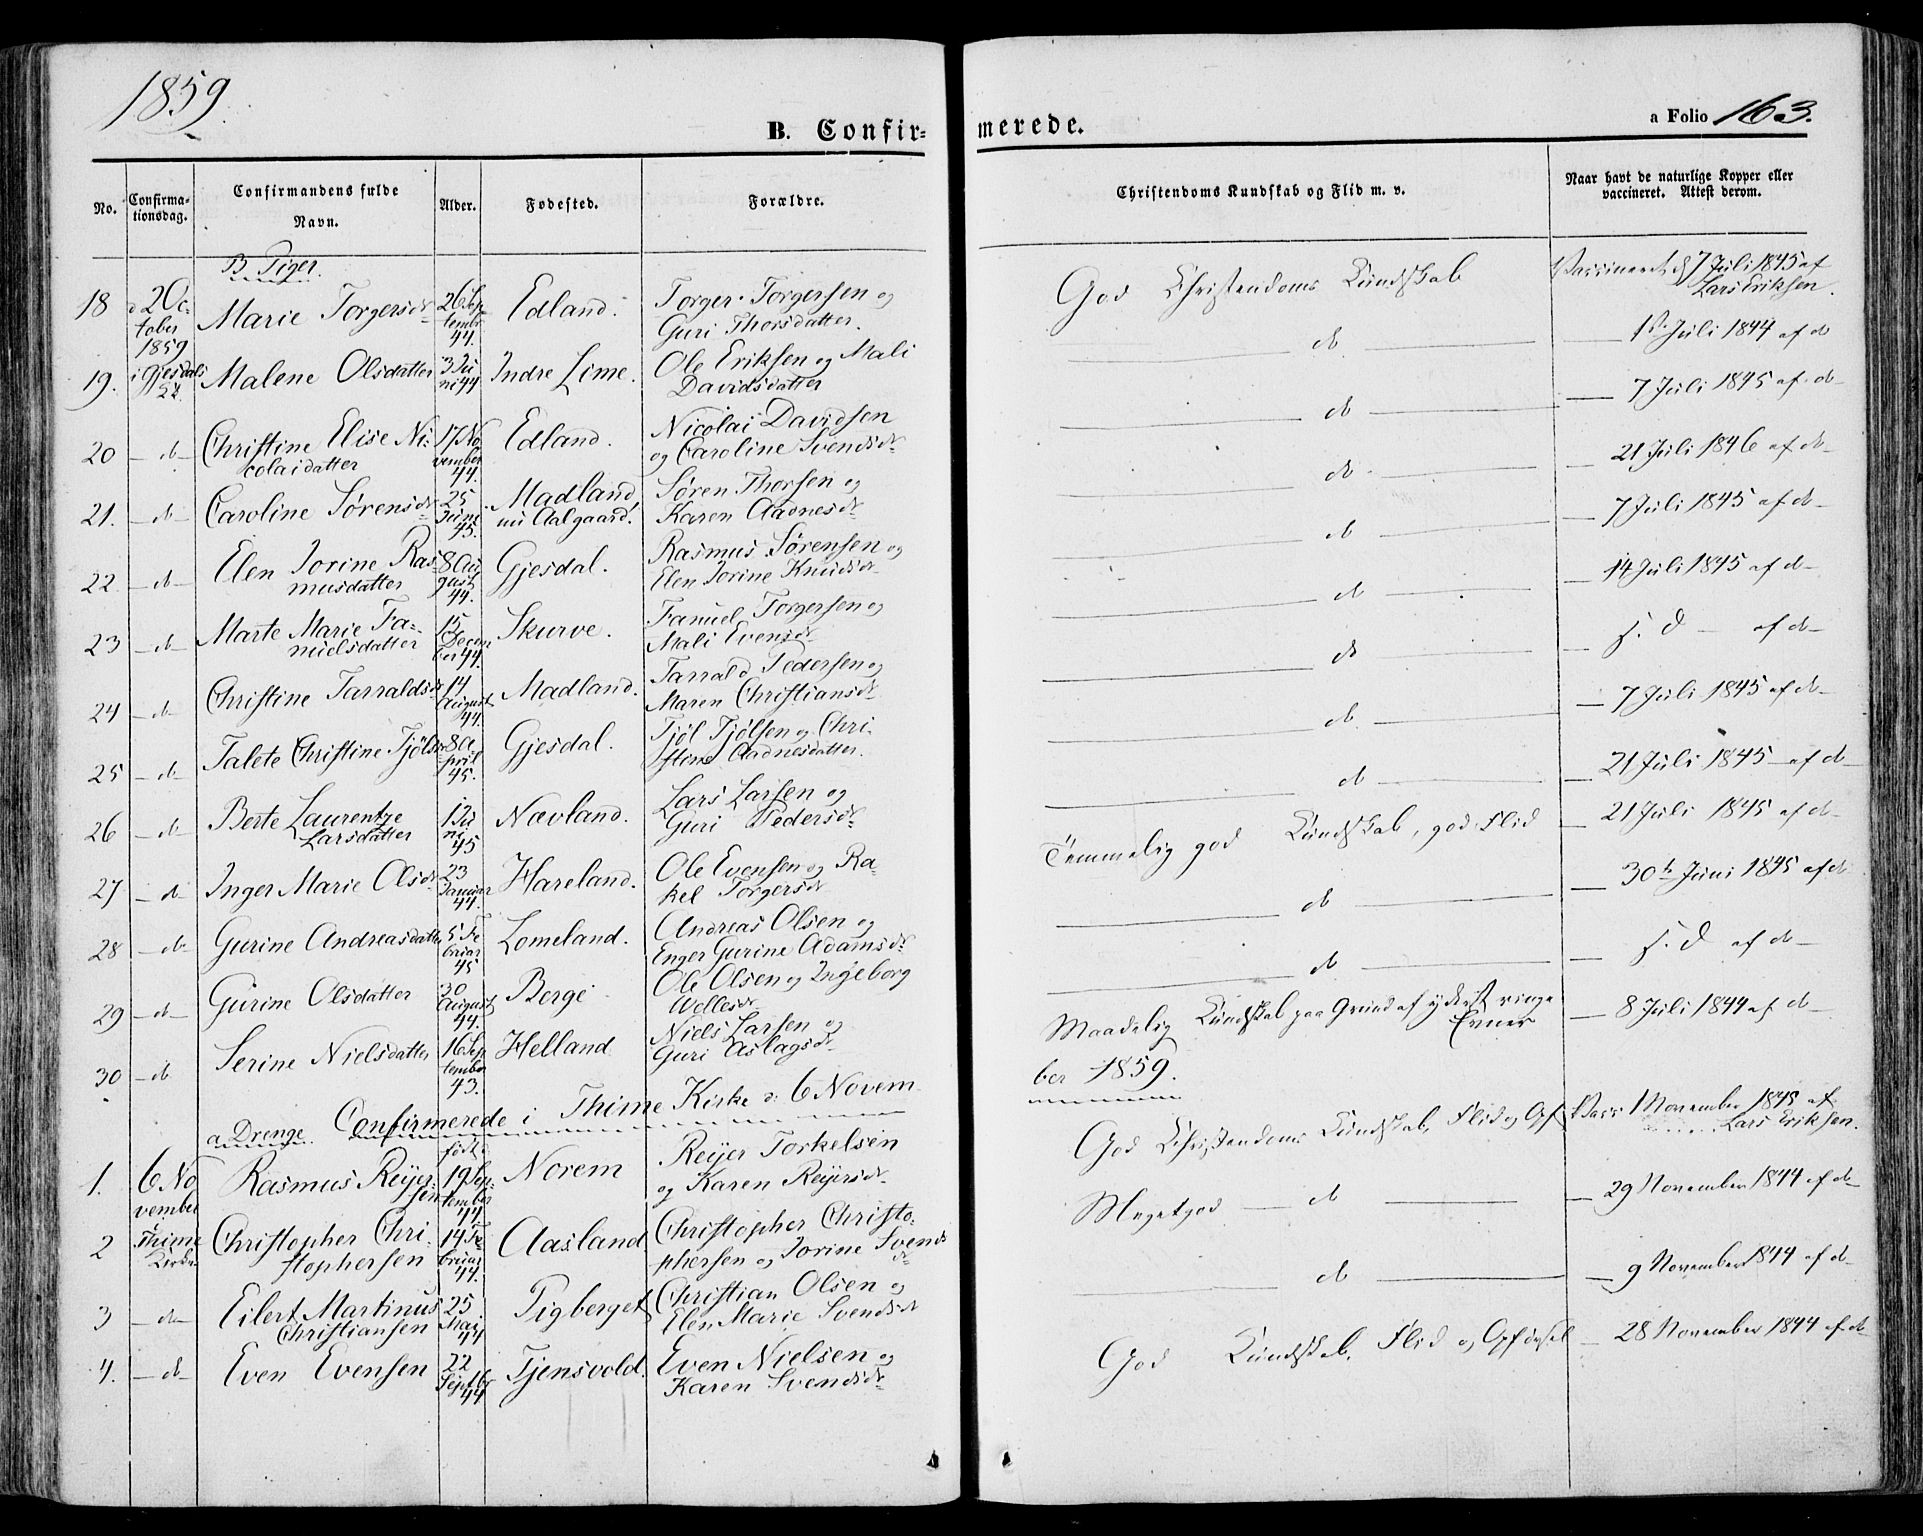 1859.
B. Confir-
merede.
a Folio 163.
No.
Confirma-
tionsdag.
Confirmandens fulde
Navn.
Alder.
Fødested.
Forældre.
Christendoms Kundskab og Flid m. v.
Naar havt de naturlige Kopper eller
vaccineret. Attest derom.
B. Piger.
18 d 2 Oc-
tober
1859
Marie Torgersdtr
26 Sep
tembr
44.
Edland.
Torger Torgersen og
Guri Thorsdatter.
God Christendoms Kundskab
Vaccineret d 7 Juli 1845 af
Lars Eriksen.
19. i Gjesdals
Malene Olsdatter
3 Ju
ni 44
Indre Lime.
Ole Eriksen og Mali
Davidsdatter
— do —
Juli 1844 af do
20 —do—
Christine Elise Ni-
colaidatter
17 No
vember
44.
Edland.
Nicolai Davidsen
og Caroline Svendsdtr
— do —
— 7 Juli 1845 af do—
21. —do—
Caroline Sørensdtr
25
Juni
45.
Madland,
nu Aalgaard.
Søren Thorsen og
Karen Aadnesdtr
— do —
— 21 Juli 1846 af do—
22 —do—
Elen Jorine Ras-
musdatter
8 Au
gust
44.
Gjesdal.
Rasmus Sørensen og
Elen Jorine Knudsdtr
— do —
— 7 Juli 1845 af do—
23 —do—
Marte Marie Fa-
nuelsdatter
15
Decem
ber 44.
Skurve.
Fanuel Torgersen og
Mali Evensdtr
— do —
— 14 Juli 1845 af do—
24 —do—
Christine Tarraldsdtr
14
August
44.
Madland.
Tarrald Pedersen og
Maren Christiansdtr
— do —
— s. d — af do—
25 —do—
Talete Christine Tjølsdtr
8 A
pril
45.
Gjesdal.
Tjøl Tjølsen og Chri-
stine Aadnesdatter.
— do —
— 7 Juli 1845 af do—
26 —do—
Berte Laurentze
Larsdatter
1 Ju
ni
45
Nævland.
Lars Larsen og
Guri Pedersdtr
— do —
— 21 Juli 1845 — af do—
27 —do—
Inger Marie Olsdtr
23
Januar
44.
Hareland.
Ole Evensen og Ra-
kel Torgersdtr
Temmelig god Kundskab, god Flid
— 21 Juli 1845 af do—
28 —do—
Gurine Andreasdatter
5 Fe
bruar
45
Lomeland.
Andreas Olsen og
Enger Gurine Adamsdtr
— do —
— 30te Juni 1845 af do
29 —do—
Gurine Olsdatter
30
August
44.
Berge
Ole Olsen og Ingeborg
Wellesdtr
— do —
s. d af do—
30 —do
Serine Nielsdatter
16 Sep
tember
43.
Helland
Niels Larsen og
Guri Aslagsdtr
Maadelig Kundskab paa Grund af yderst ringe
Evner
— 8 Juli 1844 af do—
Confirmerede i Thime Kirke d: 6 Novem
ber 1859.
a Drenge.
1. 6 No
vember
Rasmus Reijer-
sen
født
19 Sep
tember
44
Norem
Reijer Torkelsen
og Karen Reijersdtr
God Christendoms Kundskab, Flid og Opf
Vacc 1 November 1845 af
Lars Eriksen.
2 Thime
Kirke
Christopher Chri-
stophersen
14 Fe-
bruar
44.
Aasland
Christopher Christo-
phersen og Jorine Svendsdtr
Megetgod — do —
— 29 November 1844 af do—
3 —do—
Eilert Martinus
Christiansen
25
Mai
44
Pigberget
Christian Olsen og
Elen Marie Svendsdtr
— do —
— 9 November 1844 af do—
4. —do—
Even Evensen
22
Septbr
44
Tjensvold.
Even Nielsen og
Karen Svendsdtr
God Kundskab, Flid og Opførsel
— 28 November 1844 af do